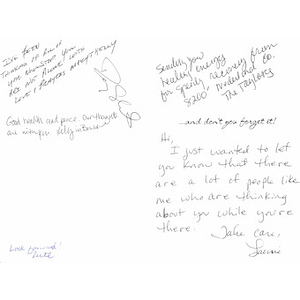 I've been
thinking of all of
you nonstop. You
are not alone! with
love & prayers
Good health and peace. Our thoughts
are with you.
Sending you
healing energy
for speedy recovery from
The Taylors
...and don't you forget it!
Hi,
I just wanted to let
you know that there
are a lot of people like
me who are thinking
about you while you're
there. Take care,
Look forward!